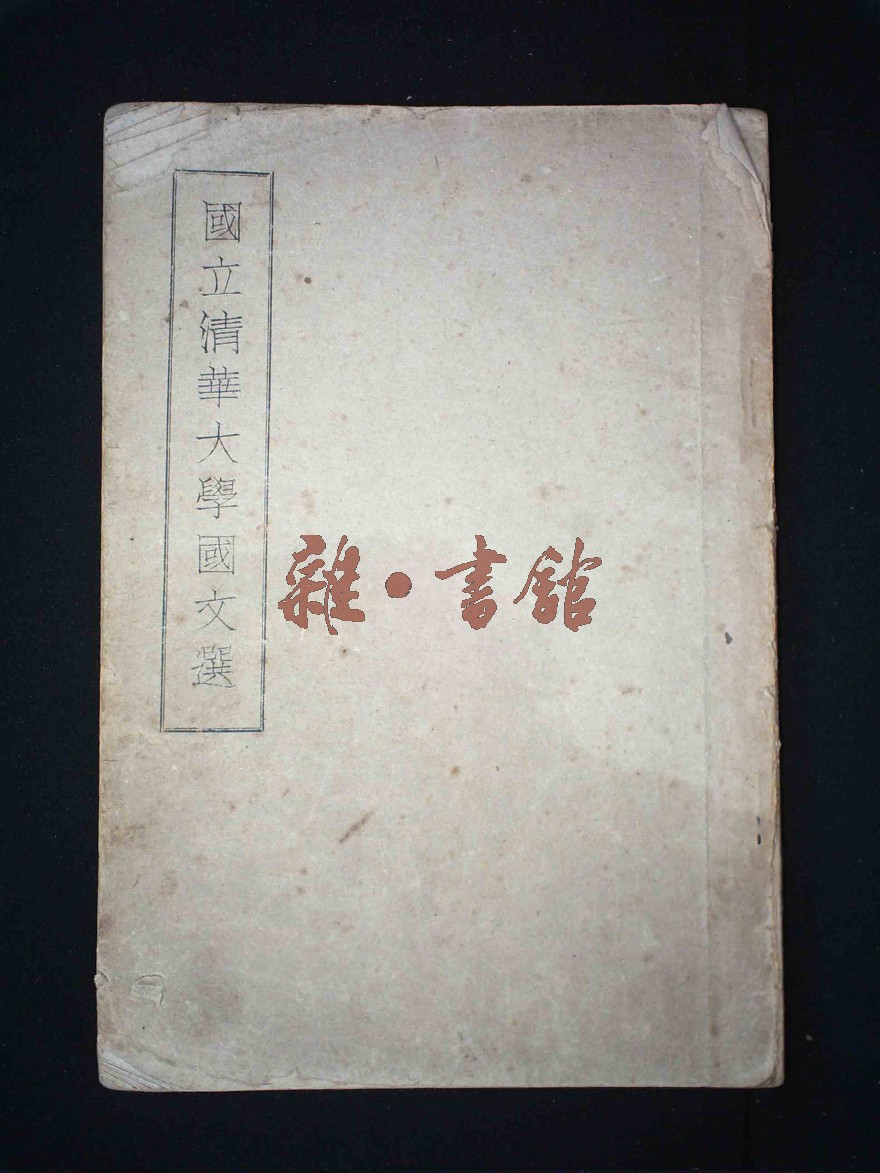 國立清華大學國文選
雜·書館